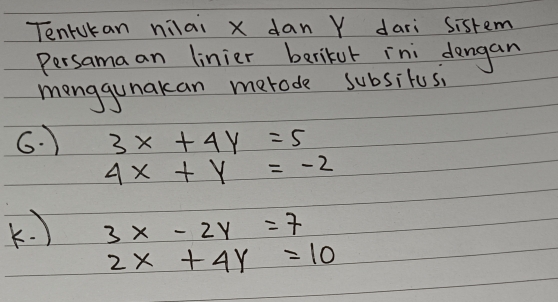 Tentukan nilai x dan Y dari sistem
Persamaan linier berikut ini dengan
menggunakan metode subsitusi
G.) 3x + 4Y = 5
4x + Y = -2
k.) 3x - 2Y = 7
2x + 4Y = 10